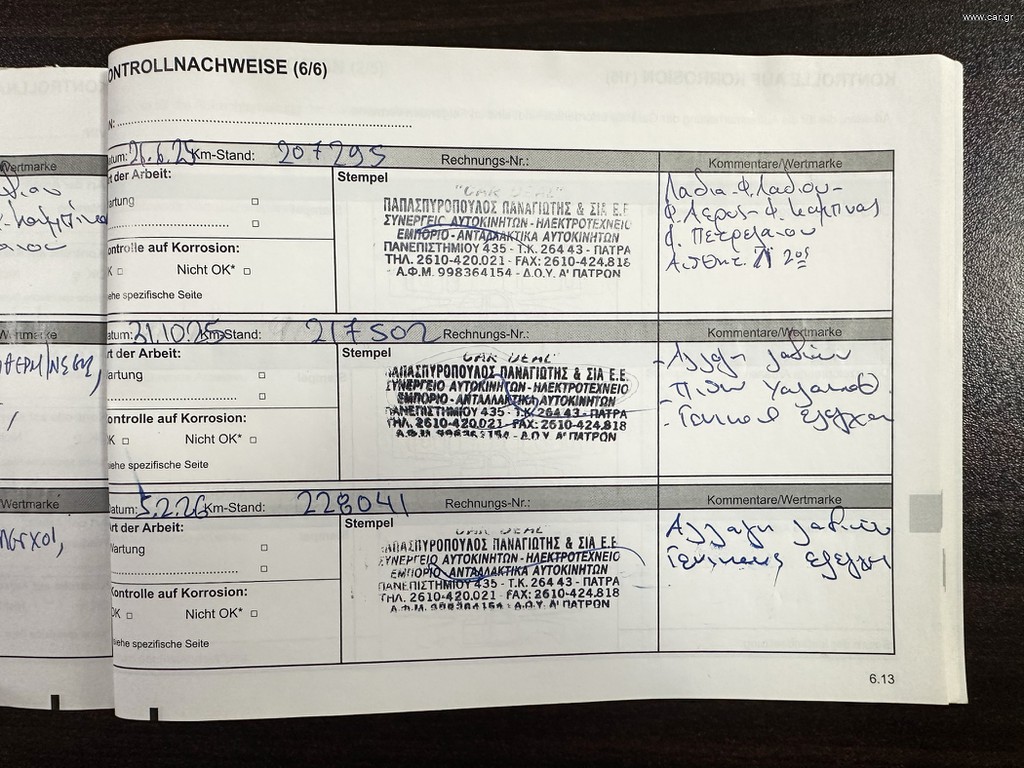 www.car.gr
ONTROLLNACHWEISE (6/6)
N:
Wertmarke
atum: 26.6.25 Km-Stand: 207295 Rechnungs-Nr.: Kommentare/Wertmarke
t der Arbeit:
artung
ontrolle auf Korrosion:
K Nicht OK*
ehe spezifische Seite
Stempel
"CAR DEAL"
ΠΑΠΑΣΠΥΡΟΠΟΥΛΟΣ ΠΑΝΑΓΙΩΤΗΣ & ΣΙΑ Ε.Ε.
ΣΥΝΕΡΓΕΙΟ ΑΥΤΟΚΙΝΗΤΩΝ - ΗΛΕΚΤΡΟΤΕΧΝΕΙΟ
ΕΜΠΟΡΙΟ - ΑΝΤΑΛΛΑΚΤΙΚΑ ΑΥΤΟΚΙΝΗΤΩΝ
ΠΑΝΕΠΙΣΤΗΜΙΟΥ 435 - Τ.Κ. 264 43 - ΠΑΤΡΑ
ΤΗΛ. 2610-420.021 - FAX: 2610-424.818
Α.Φ.Μ. 998364154 - Δ.Ο.Υ. Α' ΠΑΤΡΩΝ
Λαδια - Φ. Λαδιου -
Φ. Αερος - Φ. Καμπινας
Φ. Πετρελαιου
Wertmarke
atum: 31.10.25 Km-Stand: 217502 Rechnungs-Nr.: Kommentare/Wertmarke
rt der Arbeit:
artung
ontrolle auf Korrosion:
K Nicht OK*
ehe spezifische Seite
Stempel
CAR DEAL
ΠΑΠΑΣΠΥΡΟΠΟΥΛΟΣ ΠΑΝΑΓΙΩΤΗΣ & ΣΙΑ Ε.Ε.
ΣΥΝΕΡΓΕΙΟ ΑΥΤΟΚΙΝΗΤΩΝ - ΗΛΕΚΤΡΟΤΕΧΝΕΙΟ
ΕΜΠΟΡΙΟ - ΑΝΤΑΛΛΑΚΤΙΚΑ ΑΥΤΟΚΙΝΗΤΩΝ
ΠΑΝΕΠΙΣΤΗΜΙΟΥ 435 - Τ.Κ. 264 43 - ΠΑΤΡΑ
ΤΗΛ. 2610-420.021 - FAX: 2610-424.818
Α.Φ.Μ. 998364154 - Δ.Ο.Υ. Α' ΠΑΤΡΩΝ
- Αλλαγη λαδιων
Wertmarke
atum: 5.2.26 Km-Stand: 228041 Rechnungs-Nr.: Kommentare/Wertmarke
rt der Arbeit:
Wartung
Kontrolle auf Korrosion:
OK Nicht OK*
siehe spezifische Seite
Stempel
CAR DEAL
ΠΑΠΑΣΠΥΡΟΠΟΥΛΟΣ ΠΑΝΑΓΙΩΤΗΣ & ΣΙΑ Ε.Ε.
ΣΥΝΕΡΓΕΙΟ ΑΥΤΟΚΙΝΗΤΩΝ - ΗΛΕΚΤΡΟΤΕΧΝΕΙΟ
ΕΜΠΟΡΙΟ - ΑΝΤΑΛΛΑΚΤΙΚΑ ΑΥΤΟΚΙΝΗΤΩΝ
ΠΑΝΕΠΙΣΤΗΜΙΟΥ 435 - Τ.Κ. 264 43 - ΠΑΤΡΑ
ΤΗΛ. 2610-420.021 - FAX: 2610-424.818
Α.Φ.Μ. 998364154 - Δ.Ο.Υ. Α' ΠΑΤΡΩΝ
Αλλαγη λαδιων
6.13